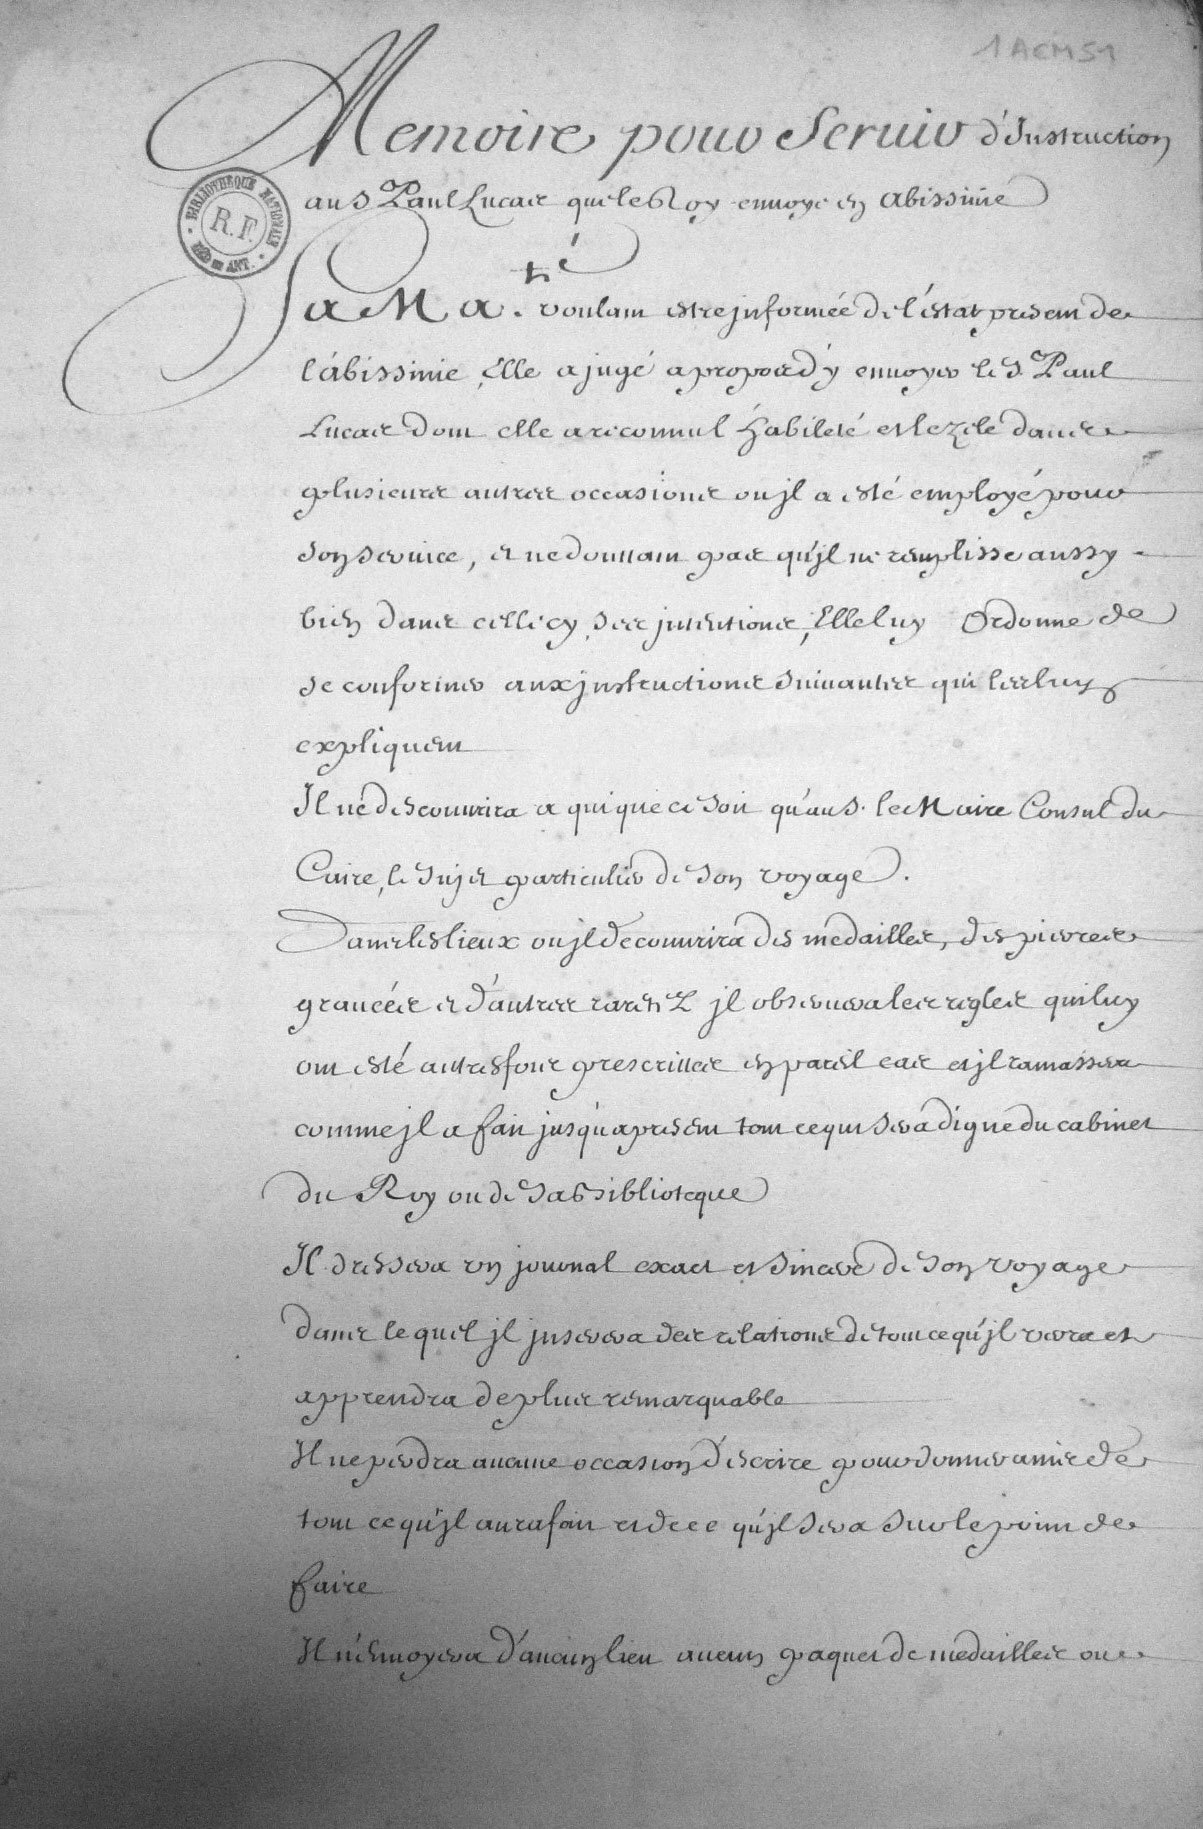 1 ACM 51
Memoire pour Seruir d'Instruction
au S. Paul Lucas que le Roy enuoye en Abissinie
BIBLIOTHEQUE NATIONALE
R.F.
MED ET ANT.
Sa Ma.té voulant estre jnformée de l'éstat present de
l'ábissinie, Elle a jugé a propos d'y enuoyer le S. Paul
Lucas dont elle a reconnu l'hábileté et le zele dans
plusieurs autres occasions ou jl a esté employé pour
son seruice, et ne doutant pas qu'jl ne remplisse aussy
bien dans celle cy, ses jntentions, Elle luy Ordonne de
se conformer aux jnstructions suiuantes qui les luy
expliquent
Il ne descouurira a qui que ce soit qu'au S. le Maire Consul du
Caire, le sujet particulier de son voyage.
Dans les lieux ou jl decouurira des medailles, des pierres
grauées et d'autres raretéz jl obseruera les regles qui luy
ont esté autresfois prescrittes en pareil cas et jl ramassera
comme jl a fait jusqu'a present tout ce qui sera digne du cabinet
du Roy ou de sa Biblioteque
Il dressera vn journal exact et sincere de son voyage
dans le quel jl jnserera des relations de tout ce qu'jl verra et
apprendra de plus remarquable
Il ne perdra aucune occasion d'éscrire pour donner auis de
tout ce qu'jl aura fait et de ce qu'jl sera sur le point de
faire
Il n'énuoyera d'aucun lieu aucun paquet de medailles ou